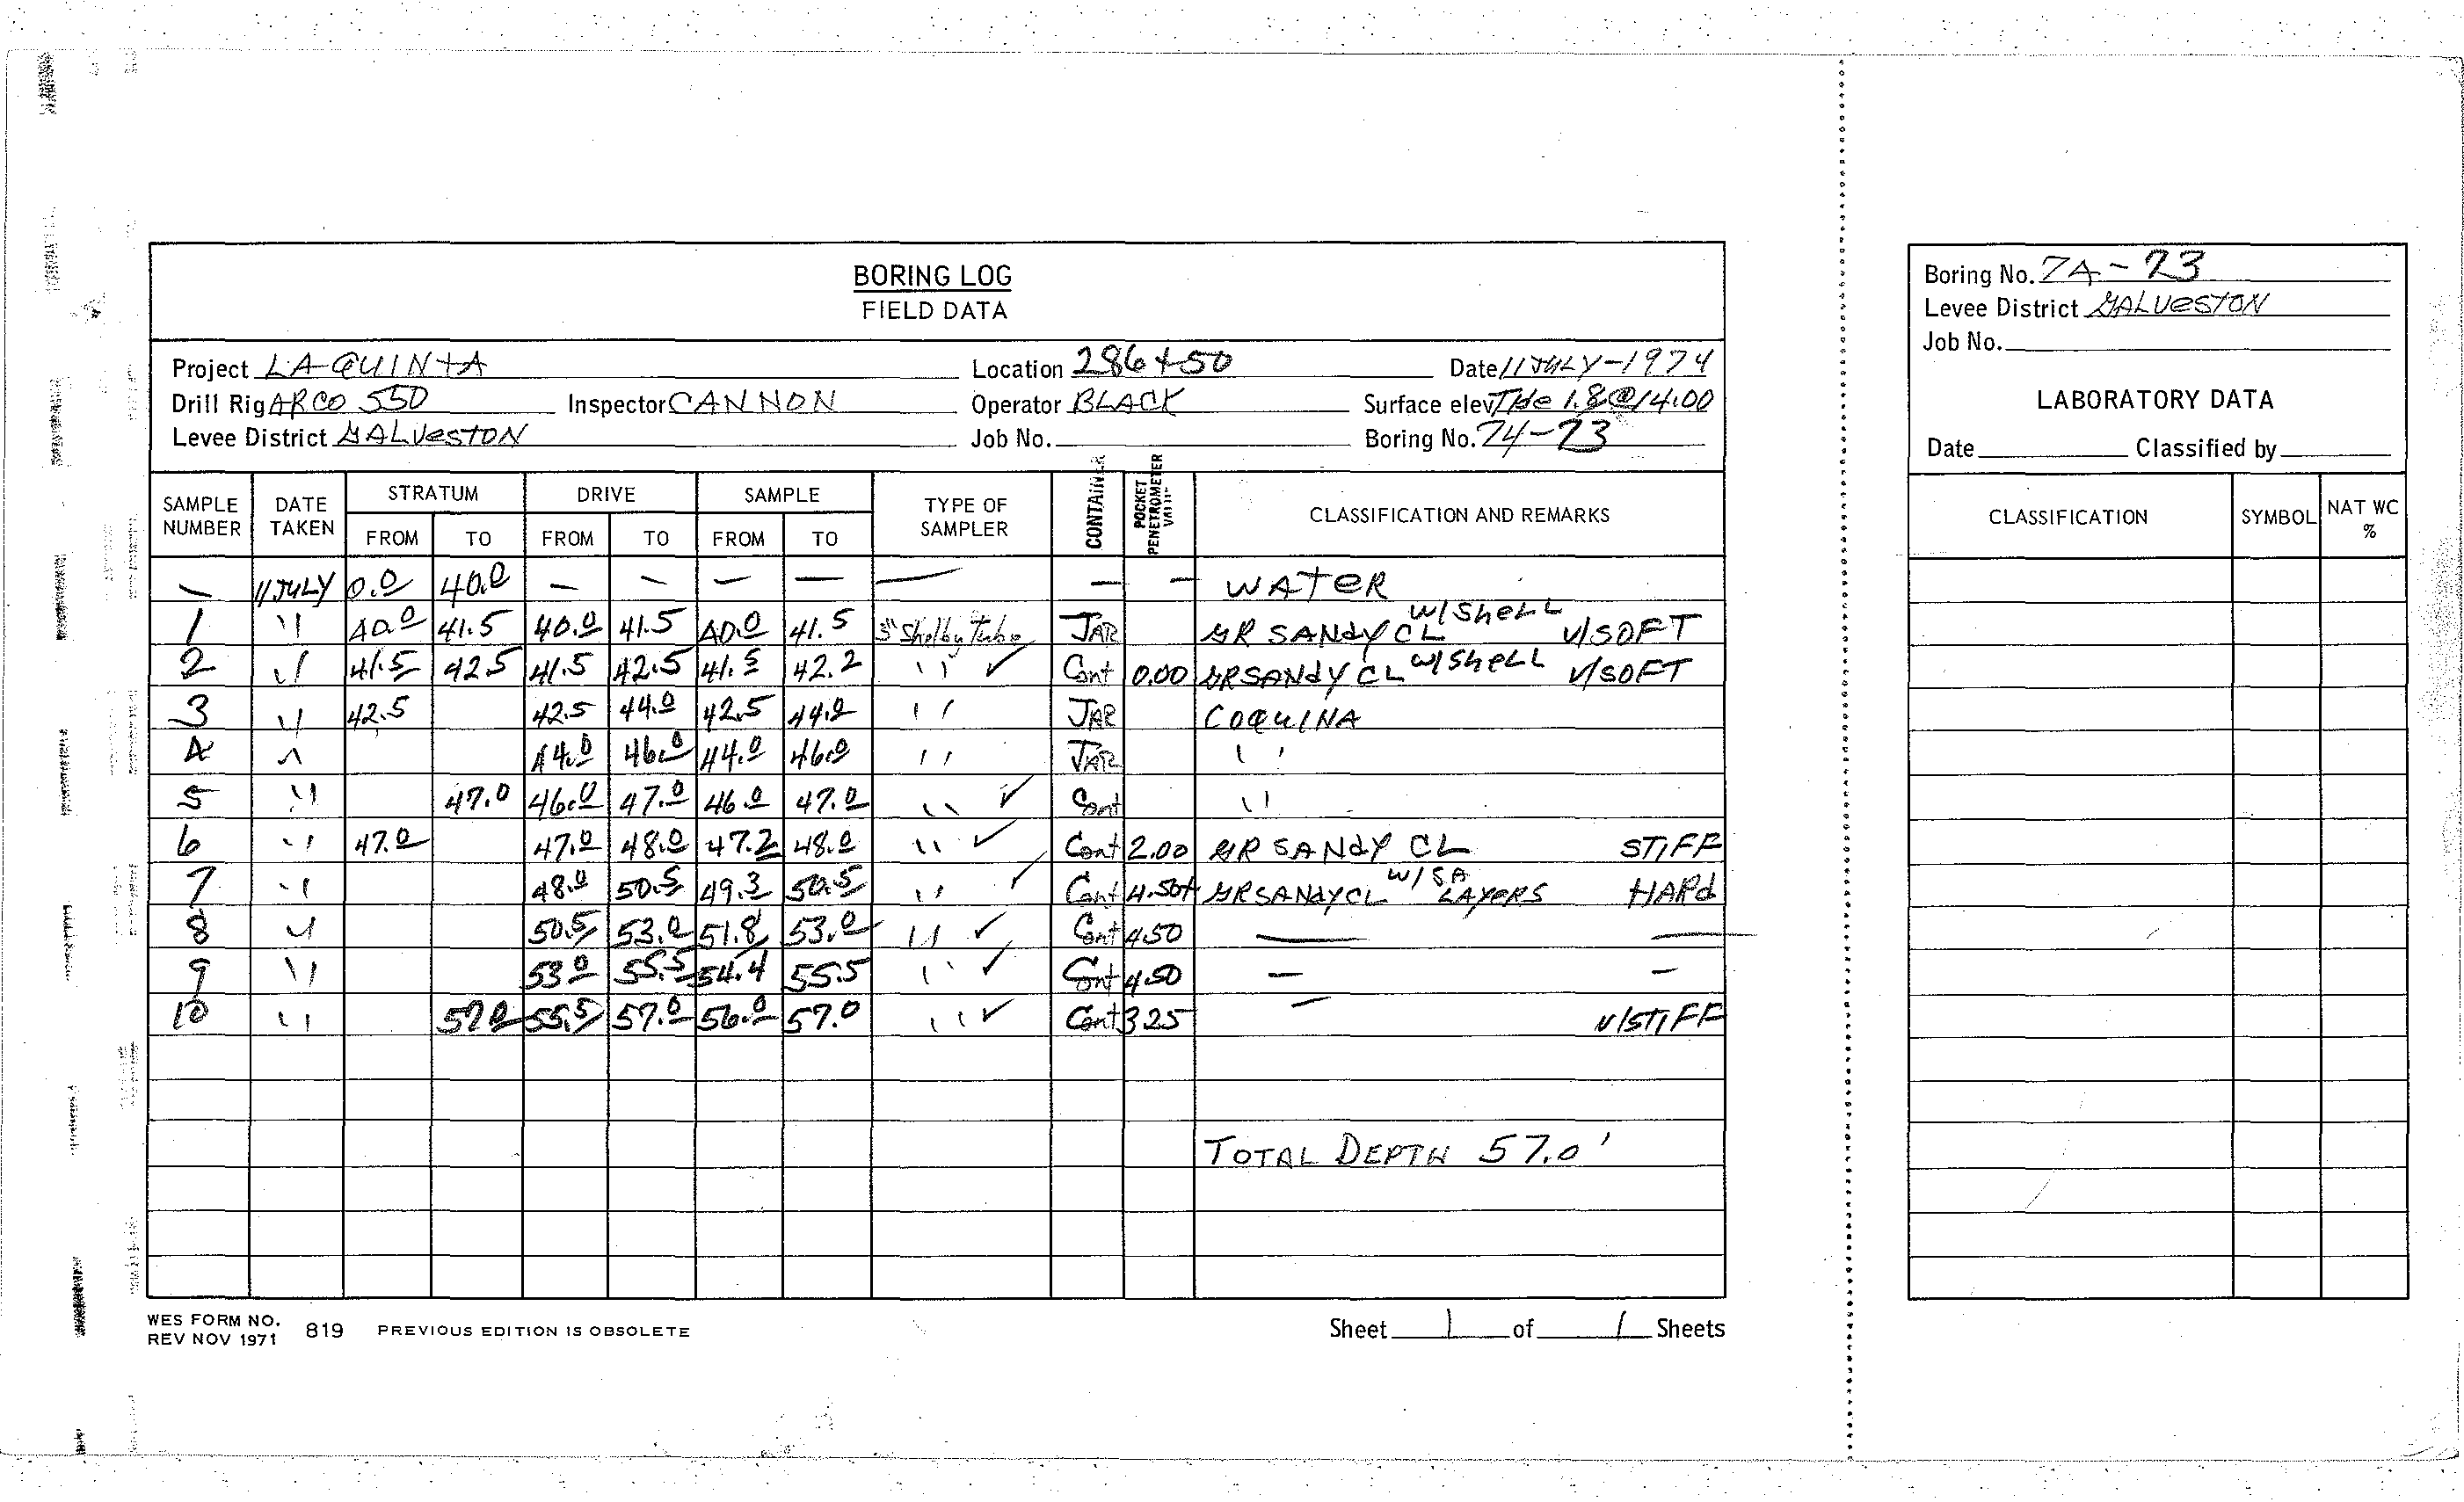 BORING LOG
FIELD DATA
Project LA QUINTA Location 286+50 Date 11 JULY-1974
Drill Rig ARCO 550 Inspector CANNON Operator BLACK Surface elev Tide 1.8 @ 14:00
Levee District GALVESTON Job No. Boring No. 74-73
SAMPLE NUMBER DATE TAKEN STRATUM FROM TO DRIVE FROM TO SAMPLE FROM TO TYPE OF SAMPLER CONTAINER POCKET PENETROMETER VALUE CLASSIFICATION AND REMARKS
— 11 JULY 0.0 40.0 — — — — — — — WATER
1 " 40.0 41.5 40.0 41.5 40.0 41.5 5" Shelby Tube JAR GR SANdY CL W/SheLL V/SOFT
2 " 41.5 42.5 41.5 42.5 41.5 42.2 " ✓ Cont 0.00 GR SANdY CL W/SheLL V/SOFT
3 " 42.5 42.5 44.0 42.5 44.0 " JAR COQUINA
4 " 44.0 46.0 44.0 46.0 " JAR "
5 " 47.0 46.0 47.0 46.0 47.0 " ✓ Cont "
6 " 47.0 47.0 48.0 47.2 48.0 " ✓ Cont 2.00 GR SANdY CL STIFF
7 " 48.0 50.5 49.3 50.5 " ✓ Cont 4.50+ GR SANdY CL W/SA LAYERS HARd
8 " 50.5 53.0 51.8 53.0 " ✓ Cont 4.50 — —
9 " 53.0 55.5 54.4 55.5 " ✓ Cont 4.50 — —
10 " 57.0 55.5 57.0 56.0 57.0 " ✓ Cont 3.25 — V/STIFF
TOTAL DEPTH 57.0'
WES FORM NO. 819 PREVIOUS EDITION IS OBSOLETE
REV NOV 1971
Sheet 1 of 1 Sheets
Boring No. 74-73
Levee District GALVESTON
Job No.
LABORATORY DATA
Date Classified by
CLASSIFICATION SYMBOL NAT WC %